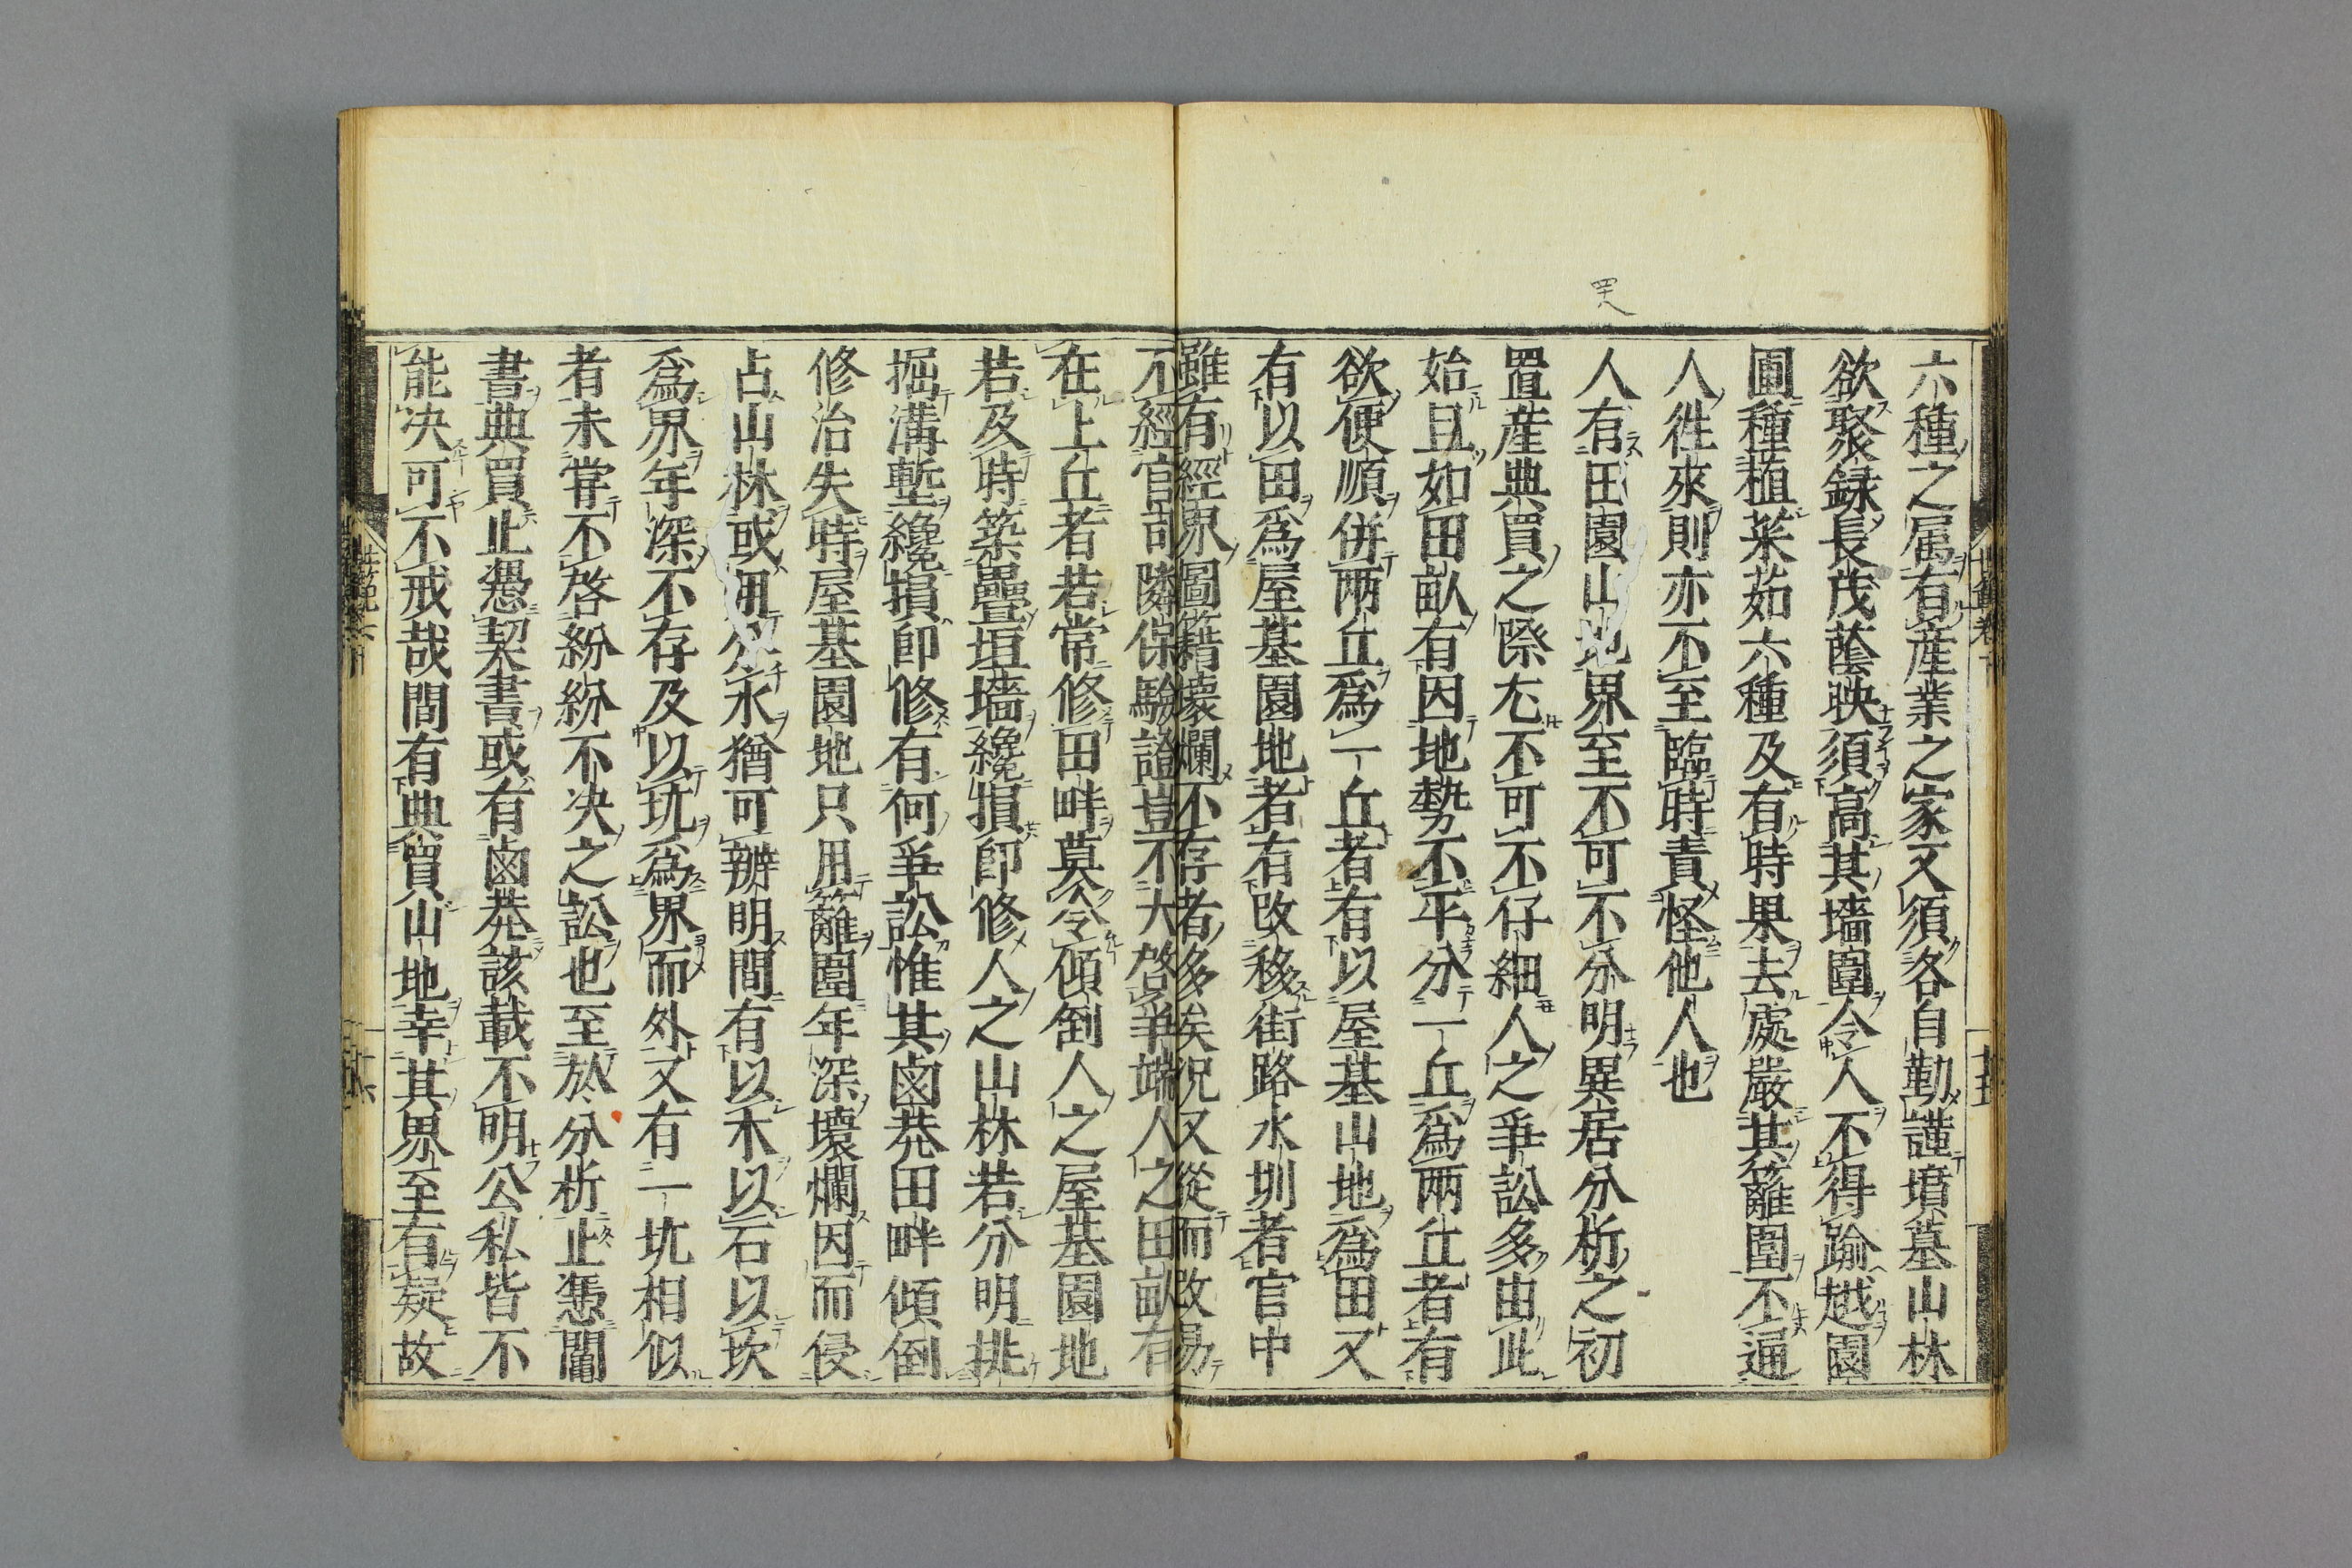 六種之属有産業之家又須各自勤謹墳墓山林
欲聚録長茂蔭映須高其墻圍令人不得踰越園
圃種植菜茹六種及有時果去處嚴其籬圍不通
人徃來則亦不至臨時責怪他人也
人有田園山地界至不可不分明異居分析之初
置産典買之際尤不可不仔細人之爭訟多由此
始且如田畝有因地勢不平分一丘爲兩丘者有
欲便順併兩丘爲一丘者有以屋基山地爲田又
有以田爲屋基園地者有改移街路水圳者官中
雖有經界圖籍壊爛不存者多矣况又從而改易
不經官司隣保驗證豈不大啓爭端人之田畝有
在上丘者若常修田畔莫令傾倒人之屋基園地
若及時築疊垣墻纔損即修人之山林若分明挑
掘溝塹纔損即修有何爭訟惟其鹵莽田畔傾倒
修治失時屋基園地只用籬圍年深壞爛因而侵
占山林或用分水猶可辧明間有以木以石以坎
爲界年深不存及以坑爲界而外又有一坑相似
者未甞不啓紛紛不决之訟也至於分析止憑鬮
書典買止憑契書或有鹵莽該載不明公私皆不
能决可不戒哉間有典買山地幸其界至有疑故